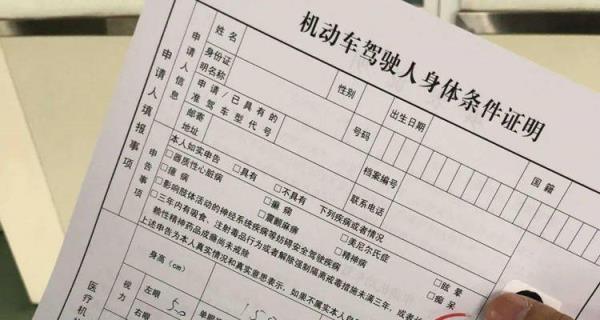 机动车驾驶人身体条件证明
申请人填报事项
申请人信息
姓名 性别 出生日期 国籍
身份证
明名称 号码
申请/已具有的
准驾车型代号 档案编号
邮寄
地址 联系电话
申告事项
本人如实申告 □具有 □不具有 下列疾病或者情况
□器质性心脏病 □癫痫 □美尼尔氏症 □眩晕
□癔病 □震颤麻痹 □精神病 □痴呆
□影响肢体活动的神经系统疾病等妨碍安全驾驶疾病
□三年内有吸食、注射毒品行为或者解除强制隔离戒毒措施未满三年，或者
赖性精神药品成瘾尚未戒除
上述申告为本人真实情况和真实意思表示，如果不属实本人
医疗机
身高（cm）
视力 左眼 5.0
右眼